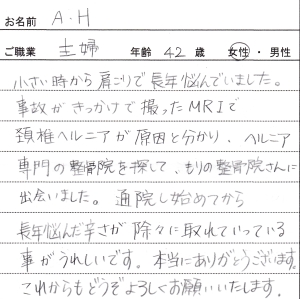 お名前 A.H
ご職業 主婦 年齢 42 歳 女性・男性
小さい時から肩こりで長年悩んでいました。
事故がきっかけで撮ったMRIで
頚椎ヘルニアが原因と分かり、ヘルニア
専門の整骨院を探して、もりの整骨院さんに
出会いました。通院し始めてから
長年悩んだ辛さが除々に取れていっている
事がうれしいです。本当にありがとうございます。
これからもどうぞよろしくお願いいたします。